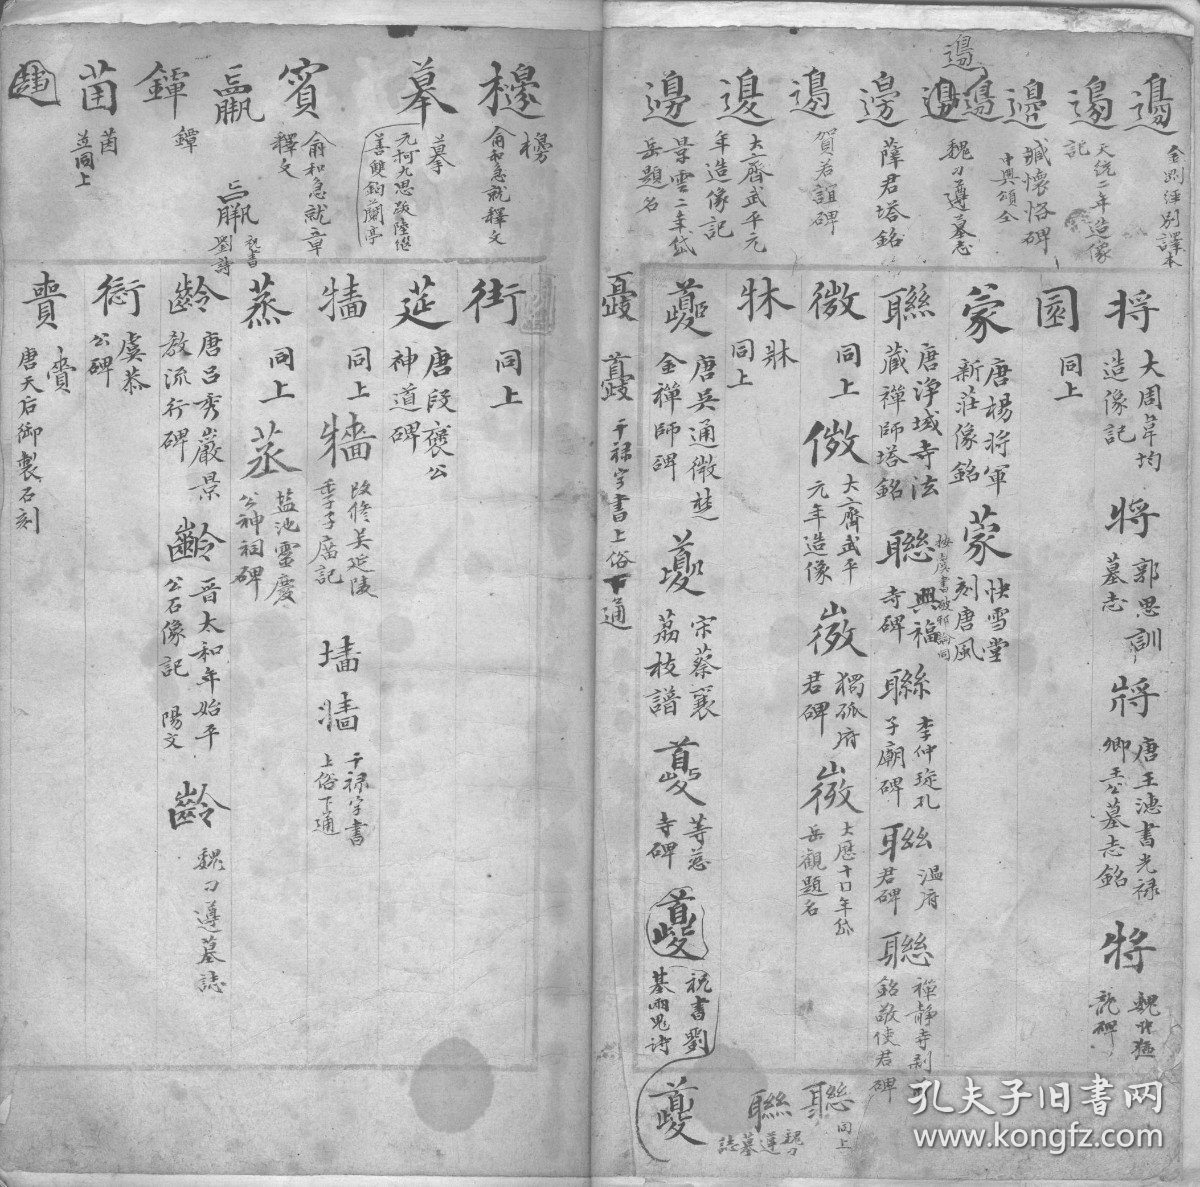 邊
邊 金剛經別譯本
邊 天統二年造像記
邊 臧懷恪碑 中興頌仝
邊邊 魏刁遵墓志
邊 薛君塔銘
邊 賀若誼碑
邊 大齊武平元年造像記
邊 景雲二年岱岳題名
将 大周韋均造像記
将 郭思訓墓志
將 唐王漶書光禄卿王公墓志銘
将
同上
蒙 唐楊将軍新莊像銘
蒙 快雪堂刻唐風
聮 唐淨域寺法藏禪師塔銘
聦 興福寺碑
聮 李仲琁孔子廟碑
聮 温府君碑
聮 禪靜寺刹銘敬使君碑
聮 同上
聮 魏刁遵墓誌
微 同上
微 大齊武平元年造像
微 獨孤府君碑
微 大曆十口年岱岳觀題名
牀 牀 同上
夔 唐吳通微楚金禪師碑
夔 宋蔡襄荔枝譜
夔 等慈寺碑
夔 祝書劉基

夔
干禄字書上俗下通
櫋 俞和急就釋文
摹 摹 元柯九思跋陸繼善雙鈎蘭亭
賓 俞和急就章釋文
羸 祝書劉詩
鐔
茵 茵 並同上
街 同上
莚 唐段襃公神道碑
墻 同上
牆 改修吴延陵季子廟記
墙
牆 干禄字書上俗下通
蒸 同上
蒸 盐池靈慶公神祠碑
齡 唐吕秀巖景教流行碑
齡 晉太和年始平公石像記 陽文
齡 魏刁遵墓誌
衙 虞恭公碑
賷 賷 唐天后御製石刻
孔夫子旧书网
www.kongfz.com